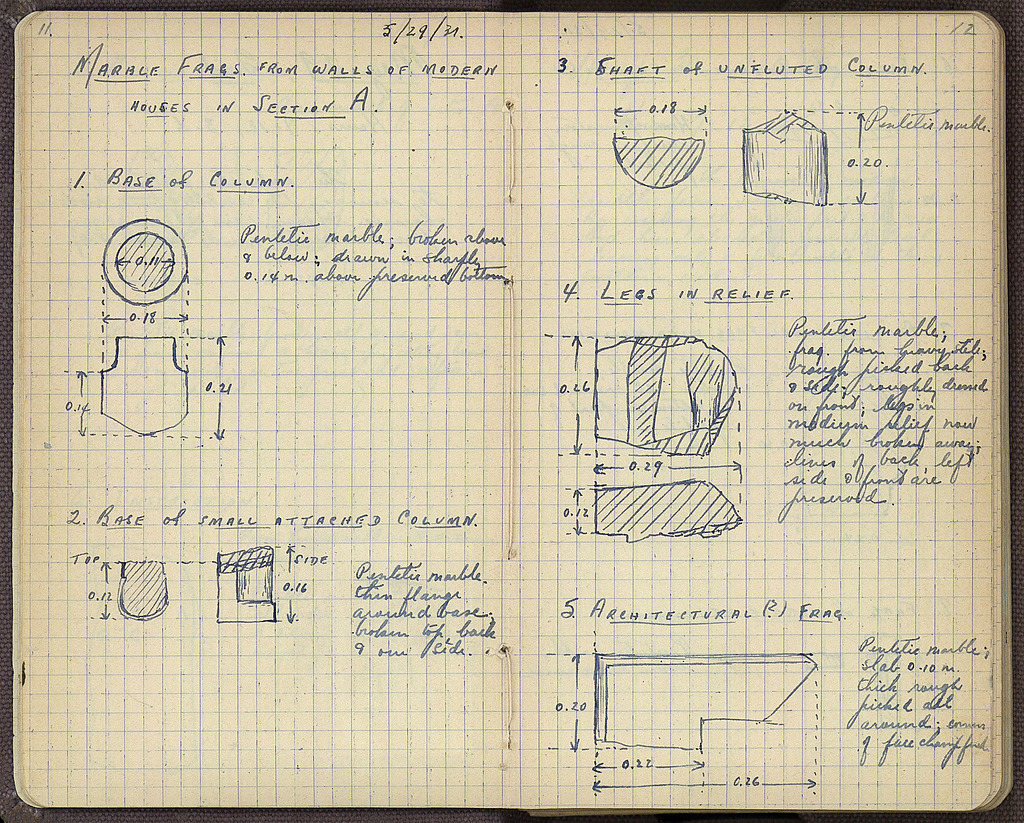 11.
5/29/31.
Marble Frags. from walls of modern
houses in Section A.
1. Base of Column.
0.11
Pentelic marble; broken above
& below; drawn in sharply
0.14 m. above preserved bottom.
0.18
0.21
0.14
2. Base of small attached Column.
Top
Side
0.12
0.16
Pentelic marble.
thin flange
around base;
broken top, back
& one side.
12
3. Shaft of unfluted Column.
0.18
Pentelic marble.
0.20.
4. Legs in relief.
Pentelic marble;
frag. from heavy stele;
rough picked back
& side; roughly dressed
on front; legs in
medium relief now
much broken away;
lines of back, left
side & front are
preserved.
0.26
0.29
0.12
5. Architectural (?) Frag.
Pentelic marble;
slab 0.10 m.
thick rough
picked all
around; corners
of face
0.20
0.22
0.26